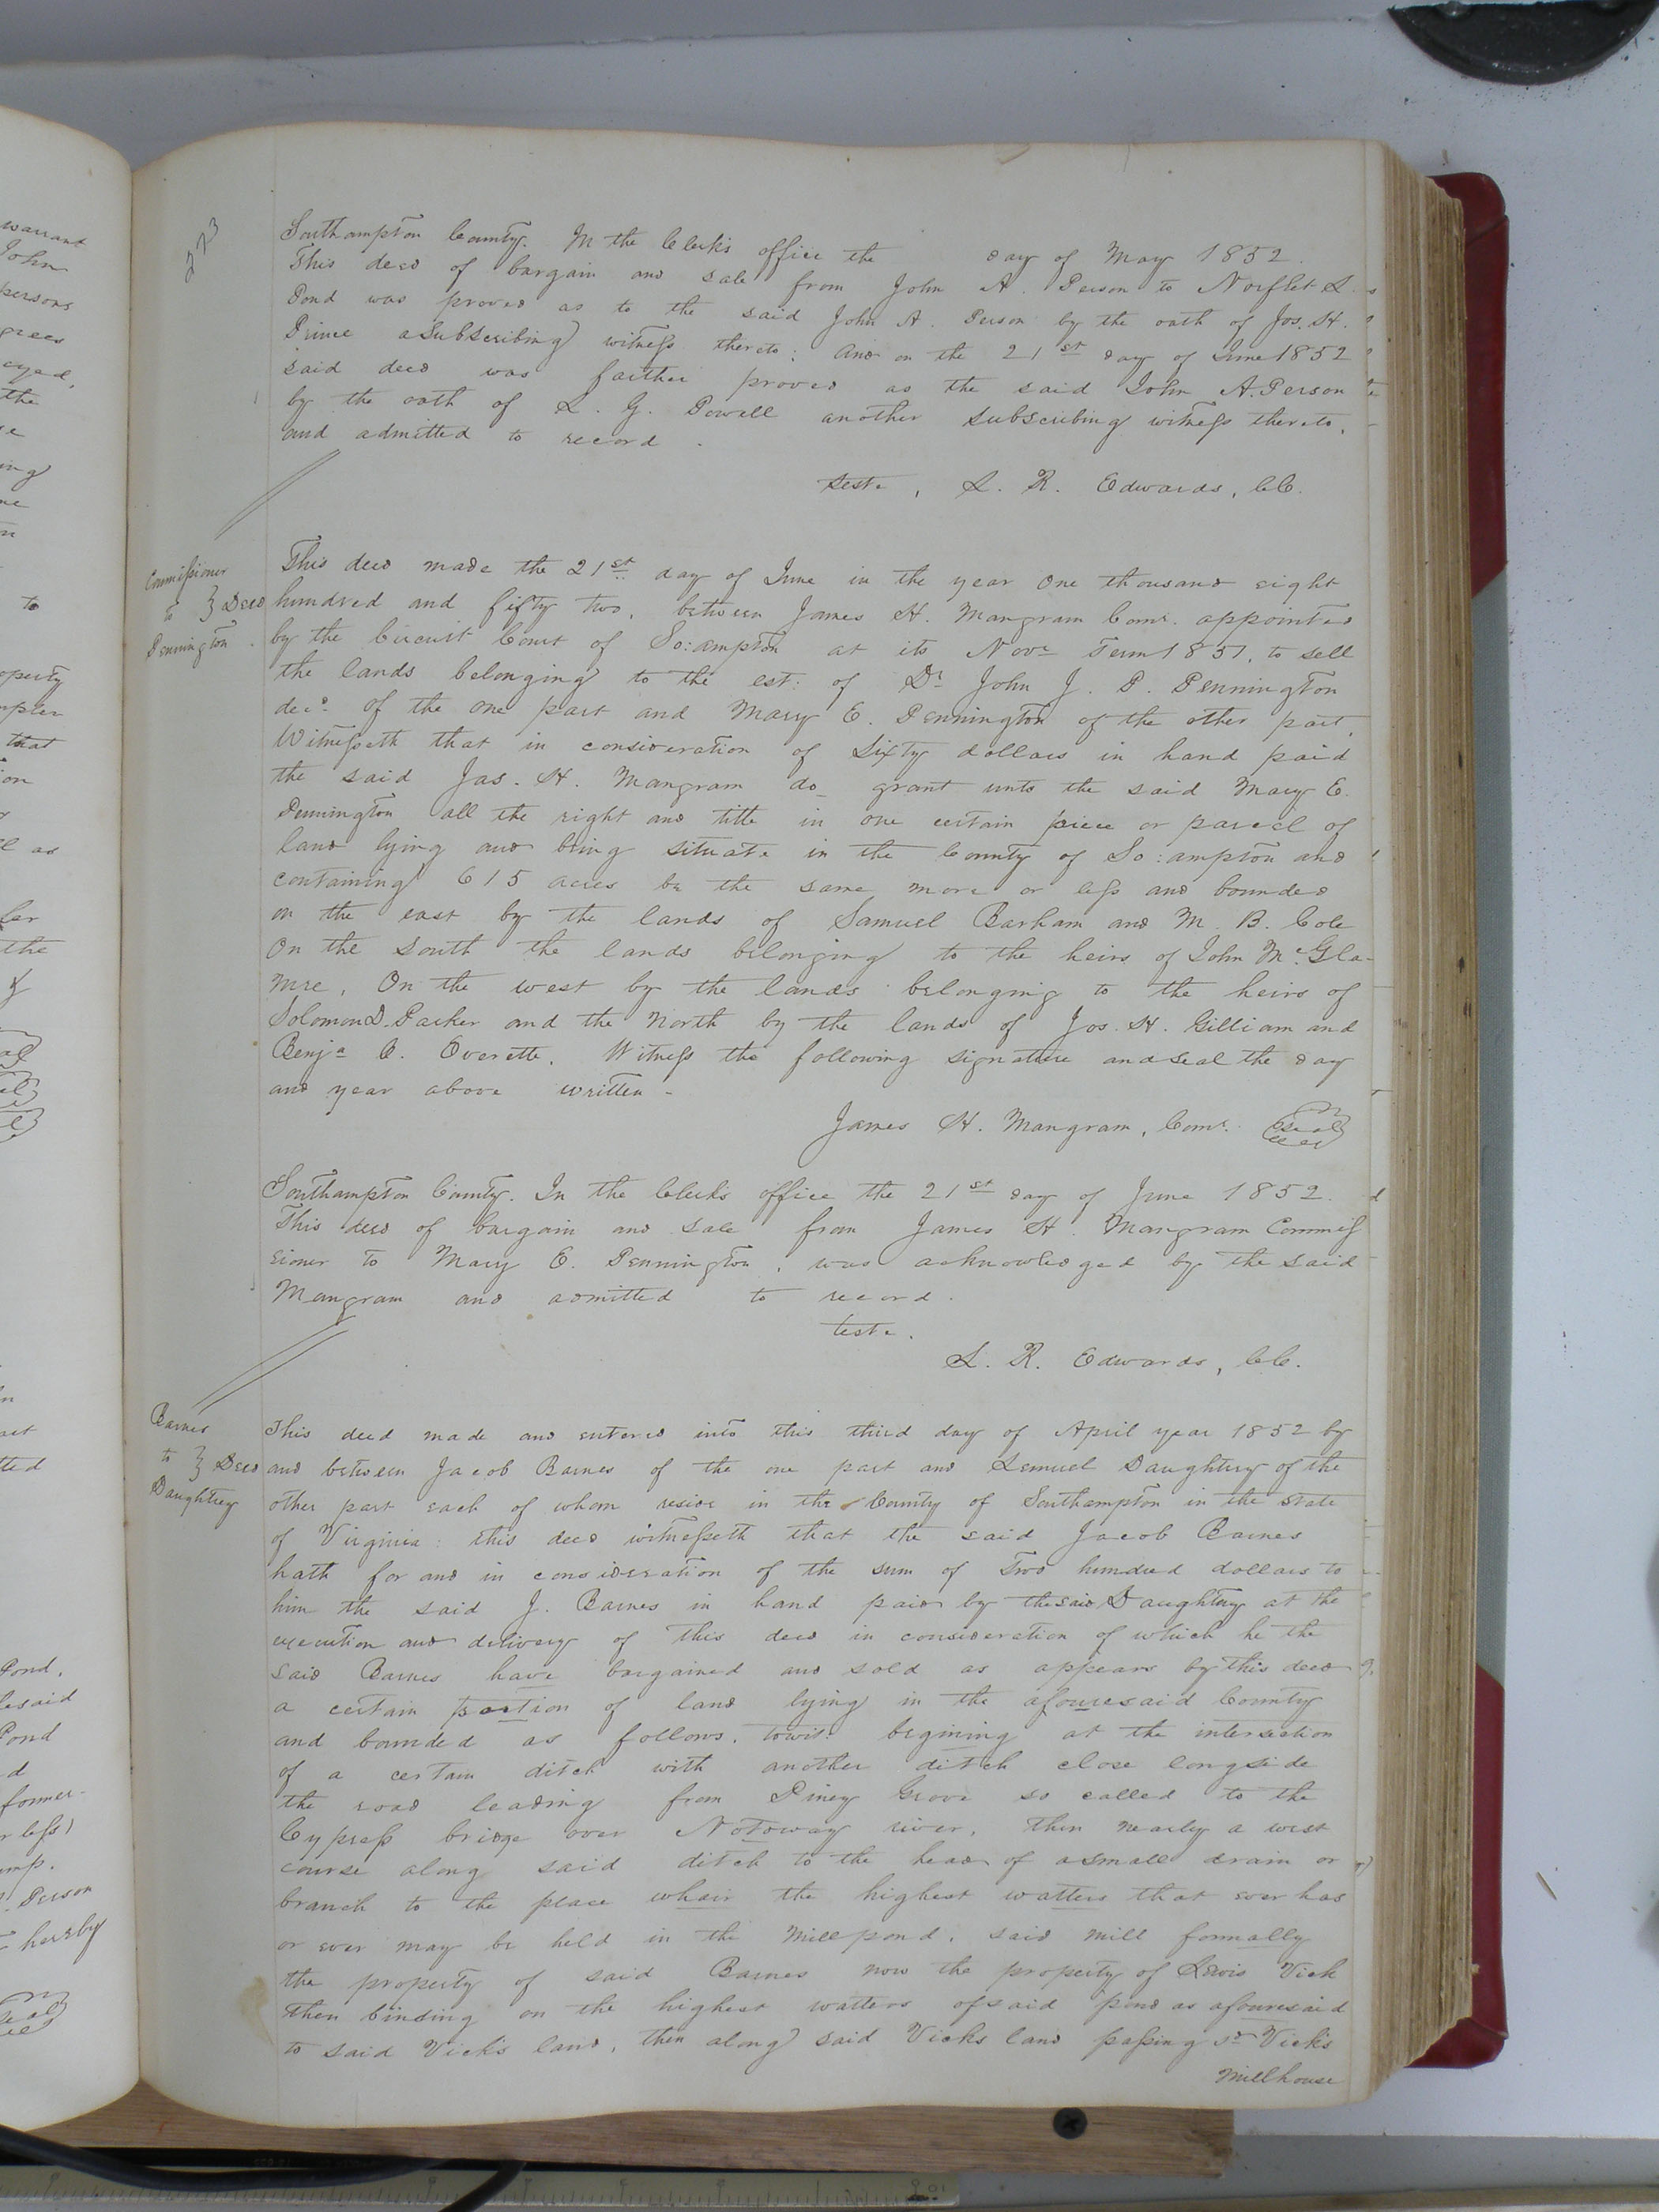 273
Southampton County. In the Clerk's office the day of May 1852.
This deed of bargain and sale from John A. Person to Norflet L.
Pond was proved as to the said John A. Person by the oath of Jos. H.
Prince a Subscribing witness thereto; and on the 21st day of June 1852
said deed was farther proved as the said John A. Person
by the oath of L. G. Powell another subscribing witness thereto,
and admitted to record.
Teste, L. R. Edwards, C.C.
Commissioner
to } Deed
Pennington
This deed made the 21st day of June in the year One thousand eight
hundred and fifty two, between James H. Mangram Comr. appointed
by the Circuit Court of So:ampton at its Novr Term 1851, to sell
the lands belonging to the est: of Dr John J. P. Pennington
decd. of the one part and Mary E. Pennington of the other part,
Witnesseth that in consideration of Sixty dollars in hand paid
the said Jas. H. Mangram do grant unto the said Mary E.
Pennington all the right and title in one certain piece or parcel of
land lying and being situate in the County of So:ampton and
containing 615 acres be the same more or less and bounded
on the east by the lands of Samuel Barham and M. B. Cole
On the south the lands belonging to the heirs of John McGla-
mre, On the west by the lands belonging to the heirs of
Solomon D. Parker and the North by the lands of Jos. H. Gilliam and
Benja C. Everette. Witness the following signature and seal the day
and year above written -
James H. Mangram, Comr. Seal
Southampton County. In the Clerk's office the 21st day of June 1852.
This deed of bargain and sale from James H. Mangram Commis
sioner to Mary E. Pennington, was acknowledged by the said
Mangram and admitted to record.
Teste.
L. R. Edwards, C.C.
Barnes
to } Deed
Daughtrey
This deed made and entered into this third day of April year 1852 by
and between Jacob Barnes of the one part and Lemuel Daughtrey of the
other part each of whom reside in the County of Southampton in the State
of Virginia: this deed witnesseth that the said Jacob Barnes
hath for and in consideration of the sum of Two hundred dollars to
him the said J. Barnes in hand paid by the said Daughtrey at the
execution and delivery of this deed in consideration of which he the
said Barnes have bargained and sold as appears by this deed
a certain portion of land lying in the afouresaid County
and bounded as follows, towit: begining at the intersection
of a certain ditch with another ditch close longside
the road leading from Piney Grove so called to the
Cypress bridge over Notoway river, then nearly a west
course along said ditch to the head of a small drain or
branch to the place whair the highest watters that ever has
or ever may be held in the Mill pond, said mill formally
the property of said Barnes now the property of Lewis Vick
then binding on the highest watters of said pond as afouresaid
to said Vick's land, then along said Vicks land passing sd Vick's
Millhouse